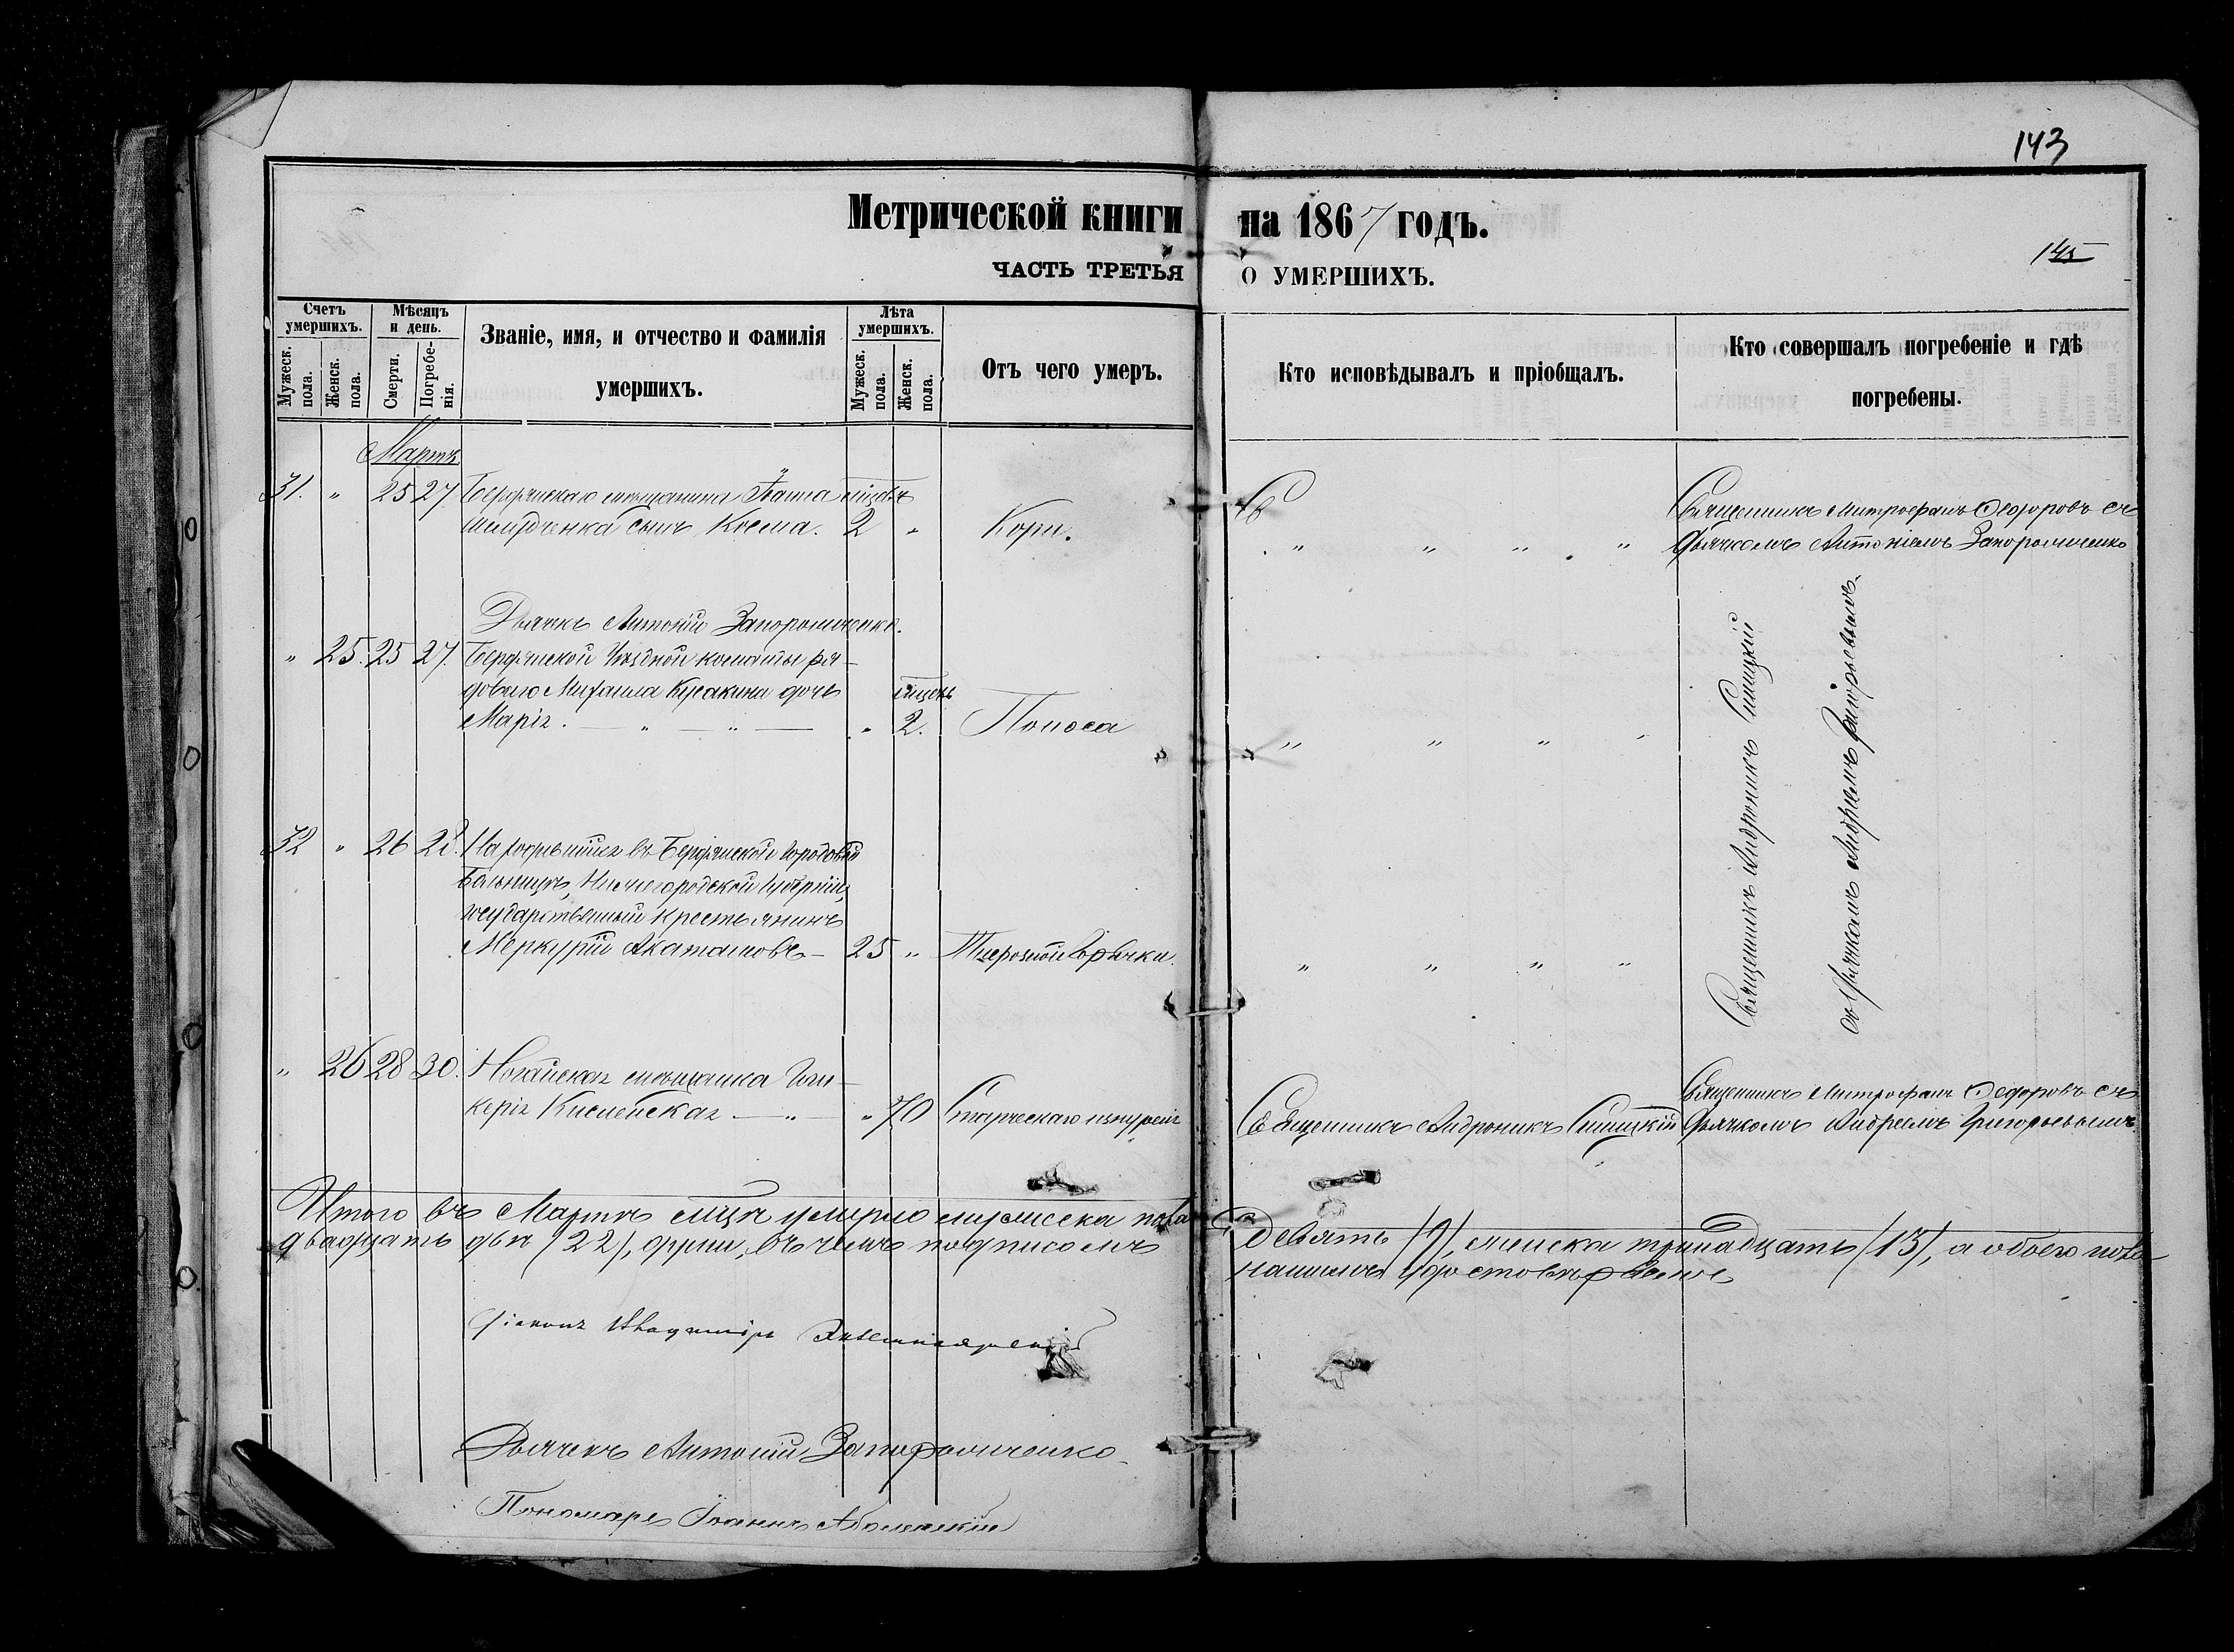 143
Метрической книги на 1867 годъ.
145
ЧАСТЬ ТРЕТЬЯ О УМЕРШИХЪ.
Счетъ умершихъ.
Мужеск. пола.
Женск. пола.
Мѣсяцъ и день.
Смерти.
Погребенія.
Званіе, имя, и отчество и фамилія
умершихъ.
Лѣта умершихъ.
Мужеск. пола.
Женск. пола.
Отъ чего умеръ.
Кто исповѣдывалъ и пріобщалъ.
Кто совершалъ погребеніе и гдѣ
погребены.
Мартъ
31. " 25 27. Бердянскаго мѣщанина Іоанна мѣсяц. Священникъ Митрофанъ Федоровъ съ
сынъ Косма. 2 " Кори. " " " " дьячкомъ Антоніемъ Запорожченко
Дьячекъ Антоній Запорожченко.
" 25. 25 27. Бердянской Уѣздной команды ря-
доваго Михаила Кусакина дочь
Марія. " 2. Поноса " " " "
Священникъ Андроникъ Синицкій
съ дьячкомъ Андреемъ Григорьевымъ.
32 " 26 28. Находившійся въ Бердянской городовой
больницѣ, Нижегородской губерніи,
государственный крестьянинъ
Меркурій 25 " горячки. " " " "
" 26 28 30. Ногайская мѣщанка Гли- Священникъ Митрофанъ Федоровъ съ
керія " 70 Старческаго Священникъ Андроникъ Синицкій дьячкомъ Андреемъ Григорьевымъ.
Итого въ Мартѣ мцѣ умерло мужеска пола девять (9), женска тринадцать (13), а обоего пола
двадцать двѣ (22), души, въ чемъ подписомъ нашимъ удостовѣряемъ
Діаконъ Владиміръ
Дьячекъ Антоній Запорожченко.
Пономарь Іоаннъ